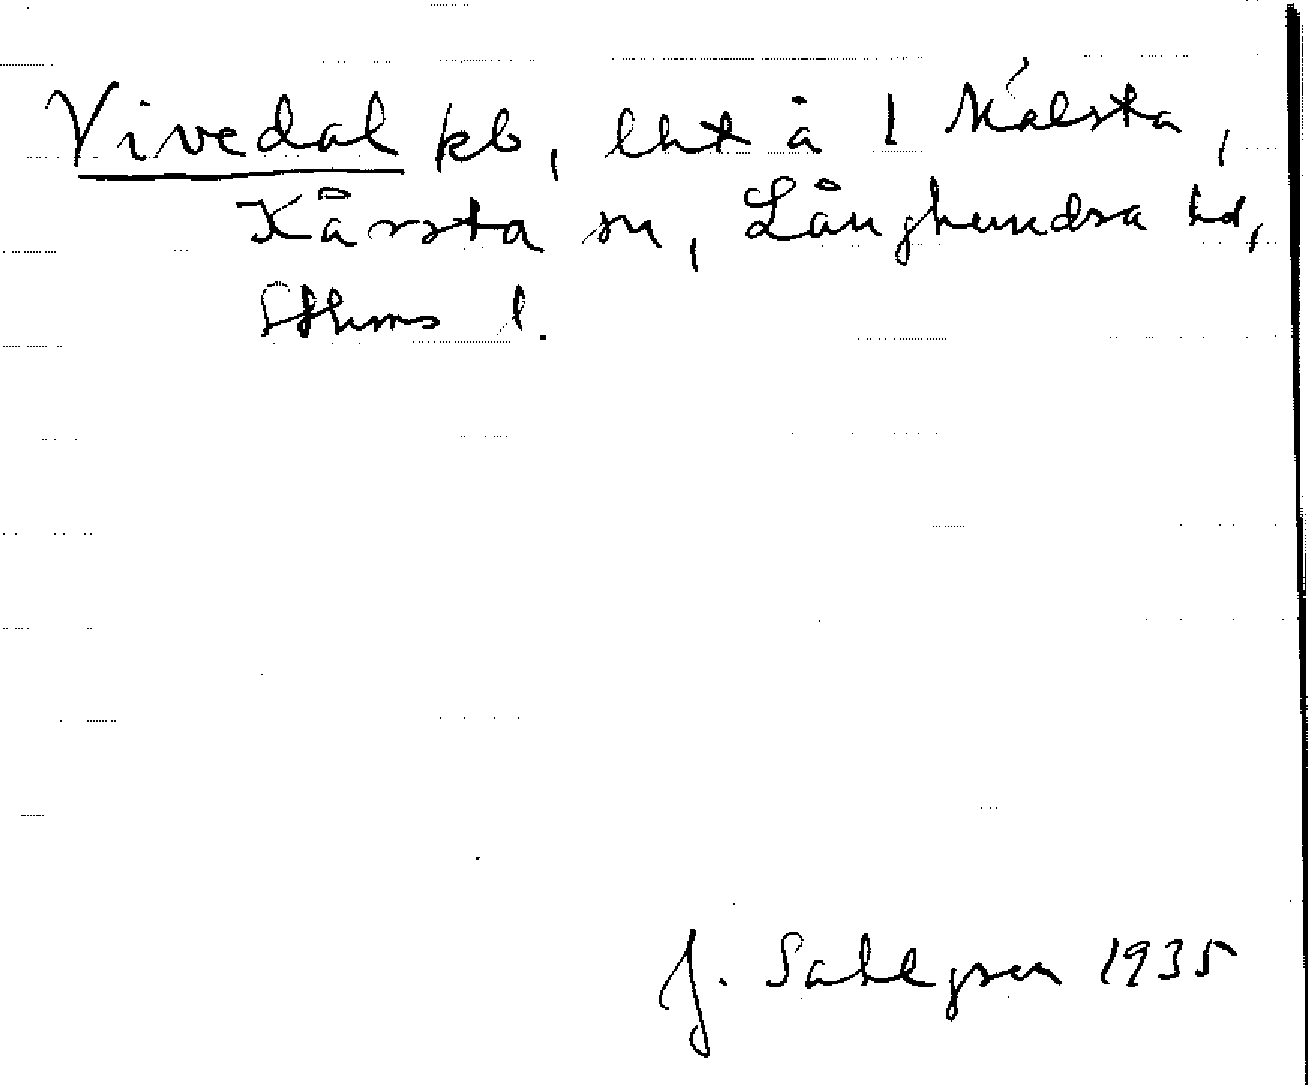 Vivedal kb, lht å 1 Målsta,
Kårsta sn, Långhundra hd,
Sthms l.
J. Sahlgren 1935